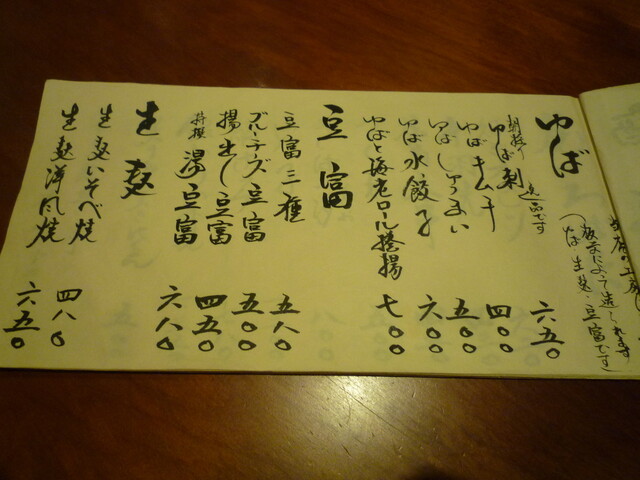 ゆば
朝採り ゆば刺 逸品です 六五〇
ゆばキムチ 四〇〇
ゆばしゅうまい 五〇〇
ゆば水餃子 六〇〇
ゆばと海老ロール揚 七〇〇
豆富
豆富三種 五八〇
ブルーチーズ豆富 五〇〇
揚出し豆富 四五〇
特撰 湯豆富 六八〇
生麩
生麩いそべ焼 四八〇
生麩洋風焼 六五〇